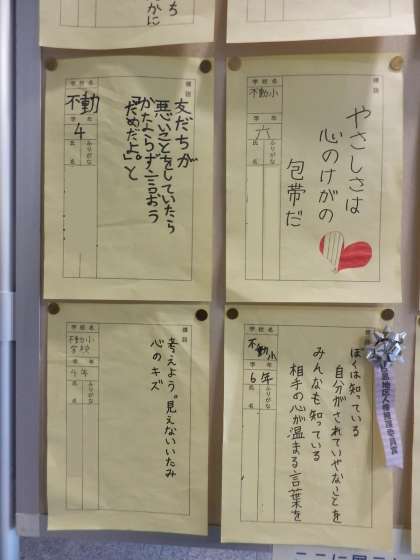 標語
やさしさは
心のけがの
包帯だ
学校名
不動小
学年
六
ふりがな
氏名
標語
友だちが
悪いことをしていたら
かならず言おう
「だめだよ。」と
学校名
不動
学年
4
ふりがな
氏名
標語
ぼくは知っている
自分がされていやなことを
みんなも知っている
相手の心が温まる言葉を
学校名
不動小
学年
6年
ふりがな
氏名
地区人権擁護委員賞
標語
考えよう。見えないいたみ
心のキズ
学校名
不動小
学校
学年
ふりがな
氏名